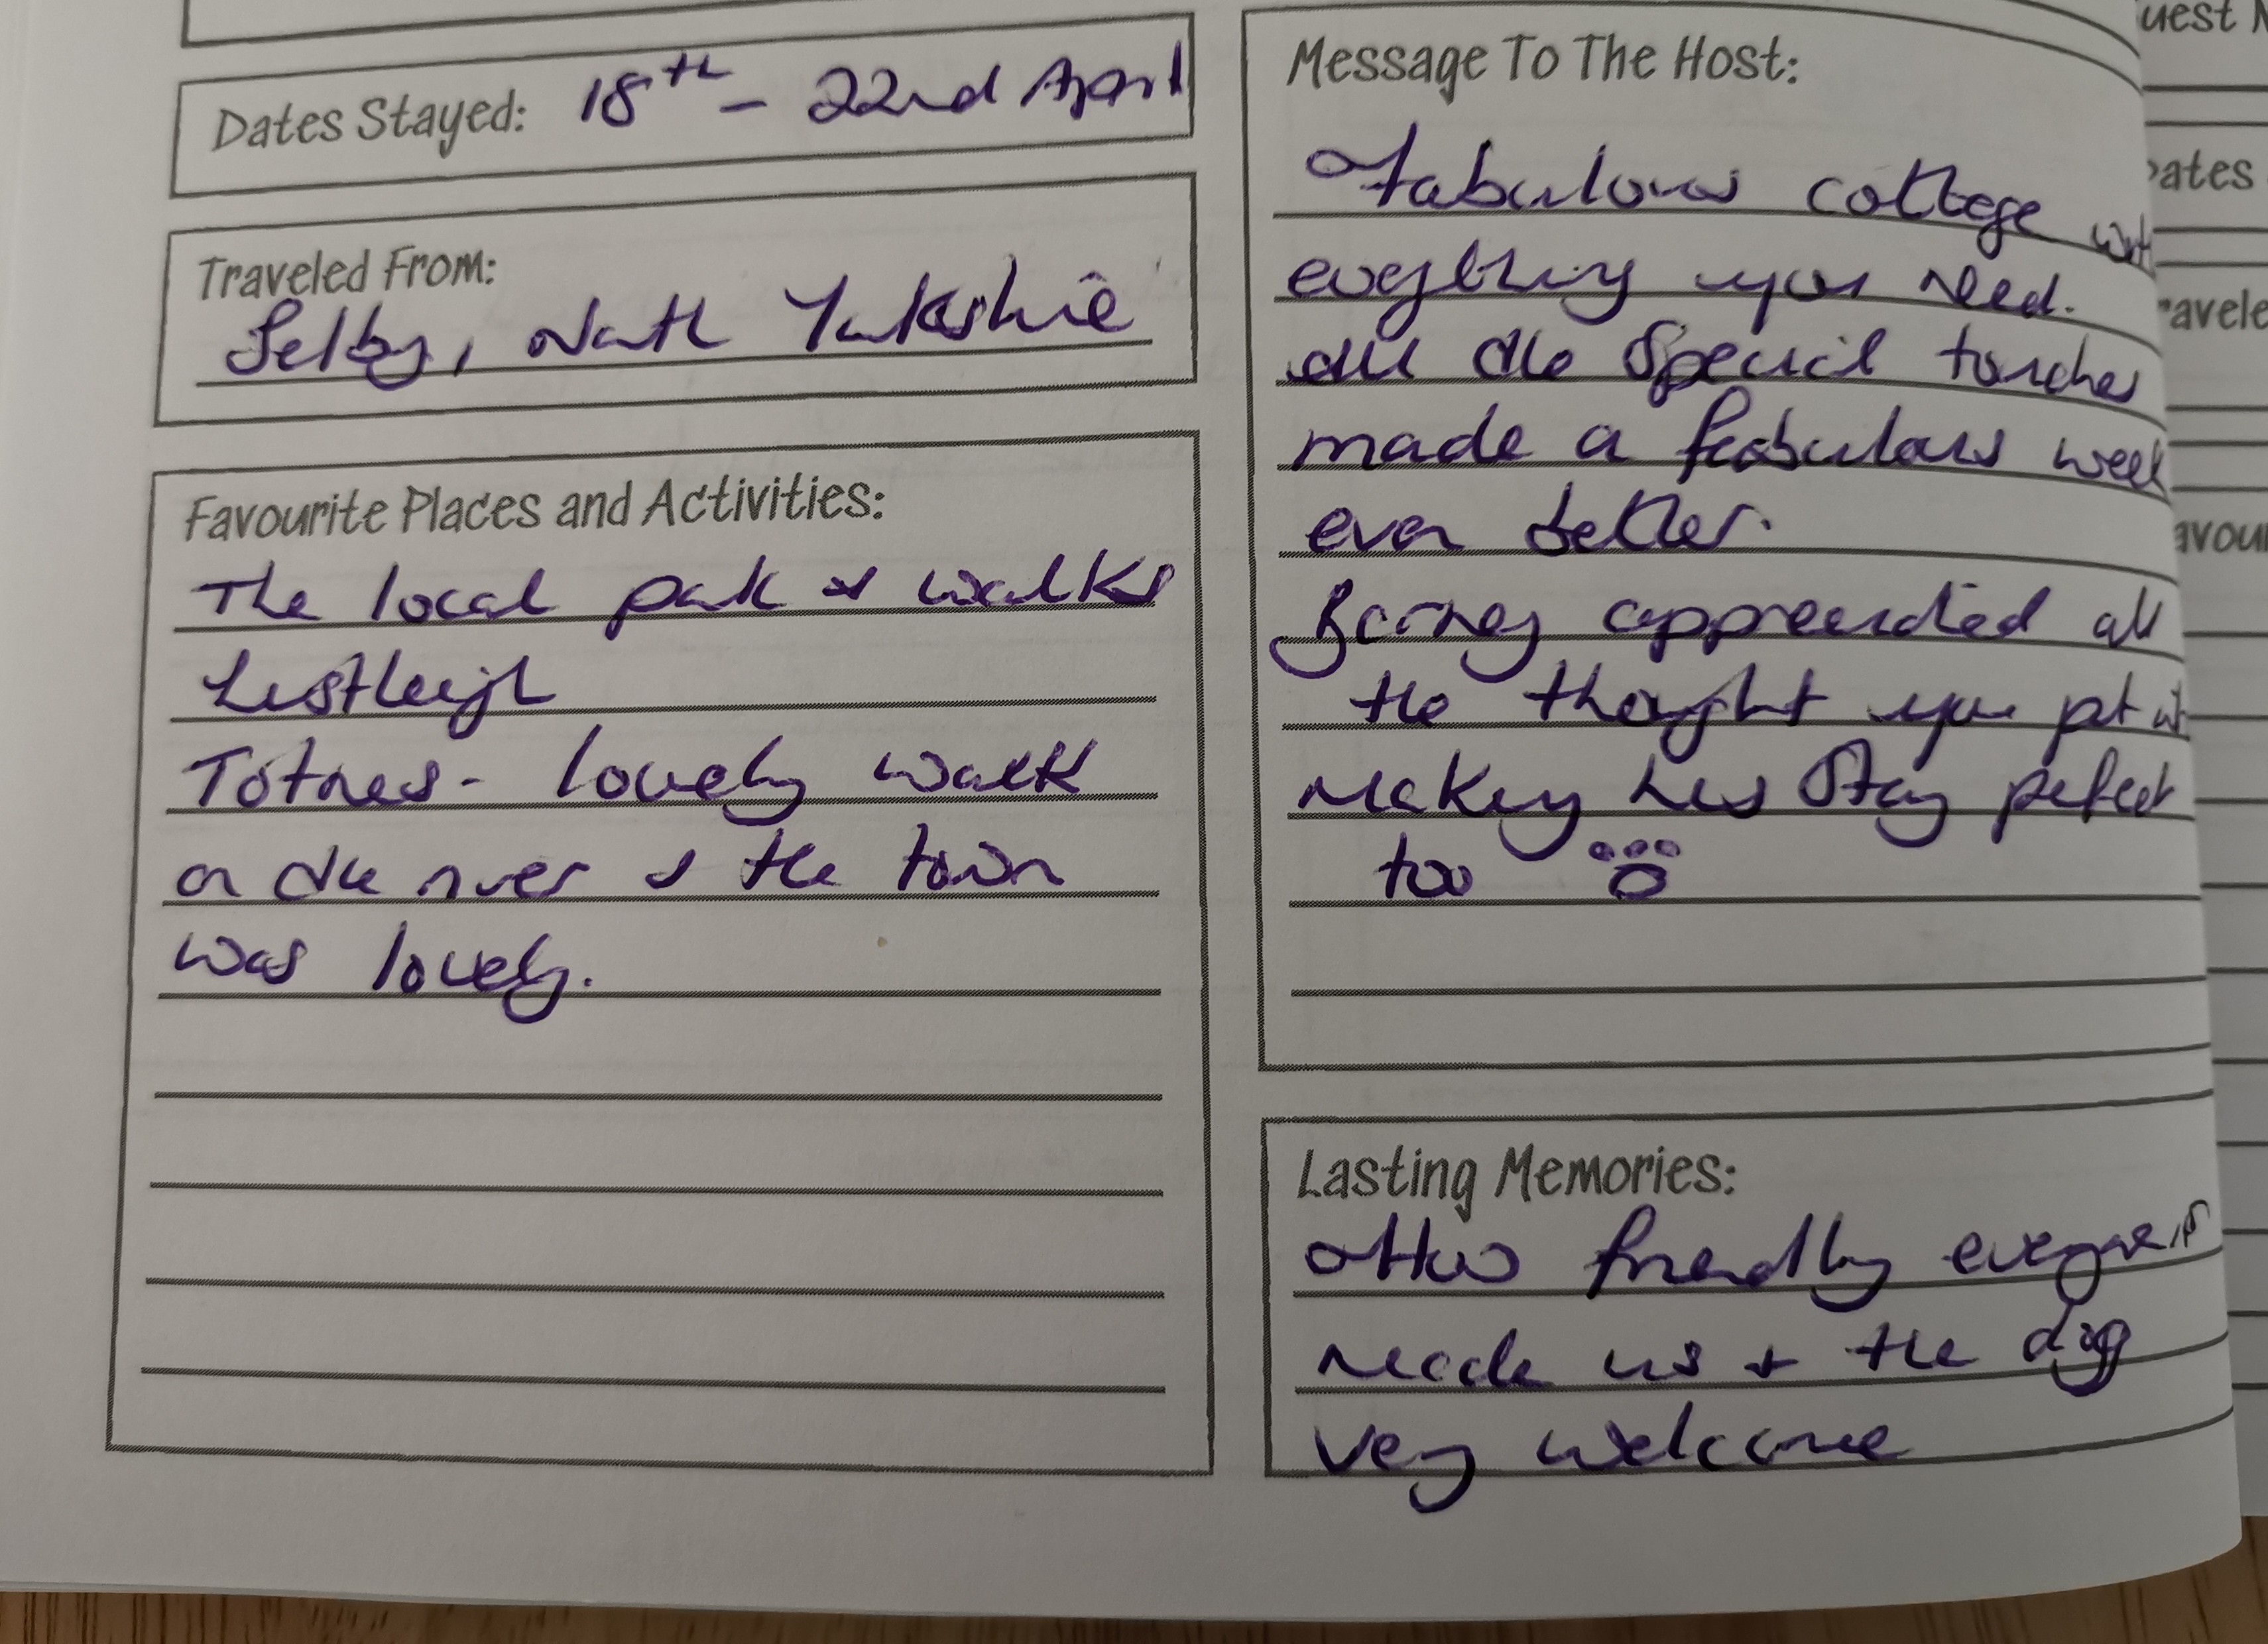 Dates Stayed: 18th - 22nd April
Traveled From:
Selby, North Yorkshire
Favourite Places and Activities:
The local park & walks
Lustleigh
Totnes - lovely walk
on the river & the town
was lovely.
Message To The Host:
Fabulous cottage with
everything you need.
All the special touches
made a fabulous week
even better.
Barney appreciated all
the thought you put in
making his stay perfect
too
Lasting Memories:
How friendly everyone is
made us & the dog
very welcome
uest N
ates
ravele
avour